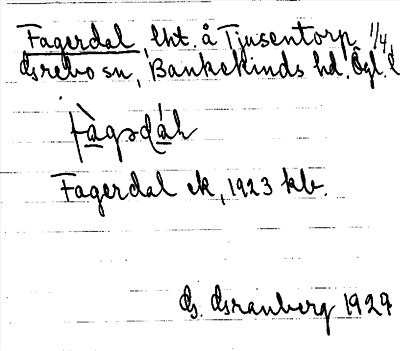 Fagerdal, lht. å Tjusentorp 1/4,
Grebo sn, Bankekinds hd. Ögl. l
fàgədáh
Fagerdal ek, 1923 kb.
G. Granberg 1929